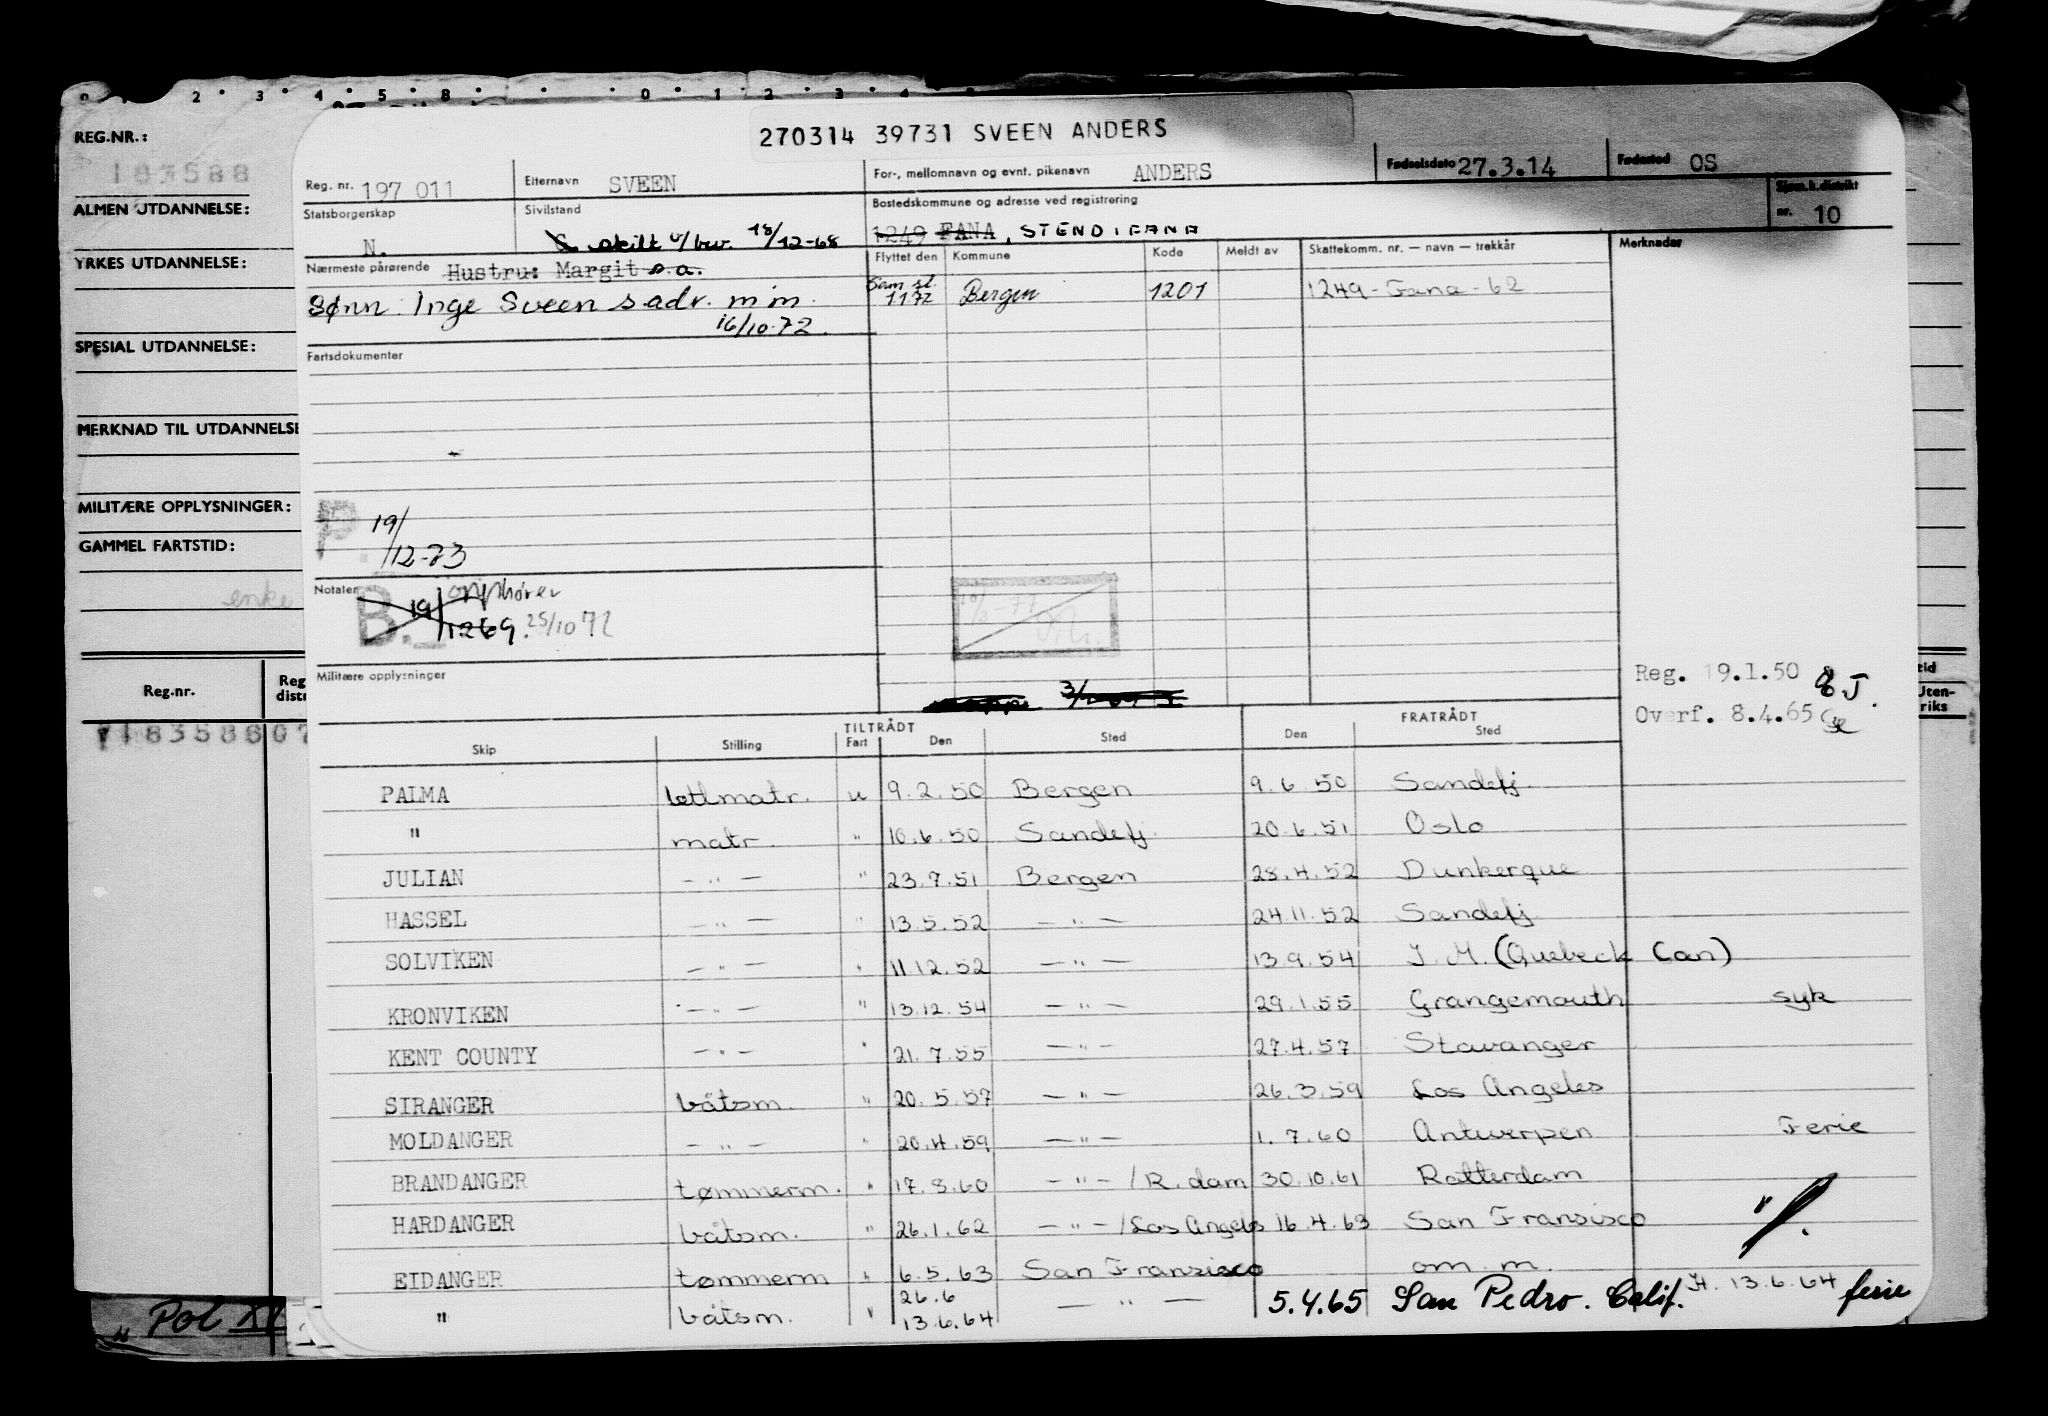 REG.NR.:
183588
ALMEN UTDANNELSE:
YRKES UTDANNELSE:
SPESIAL UTDANNELSE:
MERKNAD TIL UTDANNELSE
MILITÆRE OPPLYSNINGER:
GAMMEL FARTSTID:
enke
Reg.nr. Reg distr
270314 39731 SVEEN ANDERS
Reg. nr. 197 011 Etternavn SVEEN For-, mellomnavn og evnt. pikenavn ANDERS Fødselsdato 27.3.14 Fødested OS
Statsborgerskap N. Sivilstand skilt u/bev. 18/12-68 Bostedskommune og adresse ved registrering 1249 FANA, STEND I FANA Sjøm.k.distrikt nr. 10
Nærmeste pårørende Hustru: Margit s.a. Flyttet den Kommune Kode Meldt av Skattekomm. nr. — navn — trekkår Merknader
Sønn: Inge Sveen s.adr. m.m. 1172 Bergen 1201 1249 - Fana - 62
16/10-72.
Fartsdokumenter
P. 19/12-73
Notater
B. 19/1269. opphører 25/10 72
Militære opplysninger
Reg. 19.1.50
Overf. 8.4.65
TILTRÅDT FRATRÅDT
Skip Stilling Fart Den Sted Den Sted
PALMA lettmatr. u 9.2.50 Bergen 9.6.50 Sandefj.
" matr. " 10.6.50 Sandefj. 20.6.51 Oslo
JULIAN — " — " 23.7.51 Bergen 28.4.52 Dunkerque
HASSEL — " — " 13.5.52 — " — 24.11.52 Sandefj.
SOLVIKEN — " — " 11.12.52 — " — 13.9.54 I.M. (Quebeck Can)
KRONVIKEN — " — " 13.12.54 — " — 29.1.55 Grangemouth syk
KENT COUNTY — " — " 21.7.55 — " — 27.4.57 Stavanger
SIRANGER båtsm. " 20.5.57 — " — 26.3.59 Los Angeles
MOLDANGER — " — " 20.4.59 — " — 1.7.60 Antwerpen Ferie
BRANDANGER tømmerm. " 17.8.60 — " — / R.dam 30.10.61 Rotterdam
HARDANGER båtsm. " 26.1.62 — " — / Los Angeles 16.4.63 San Fransisco "
EIDANGER tømmerm " 6.5.63 San Franzisco om m.
26.6
" båtsm. " 13.6.64 — " — 5.4.65 San Pedro. Calif. 13.6.64 ferie
" Pol XI